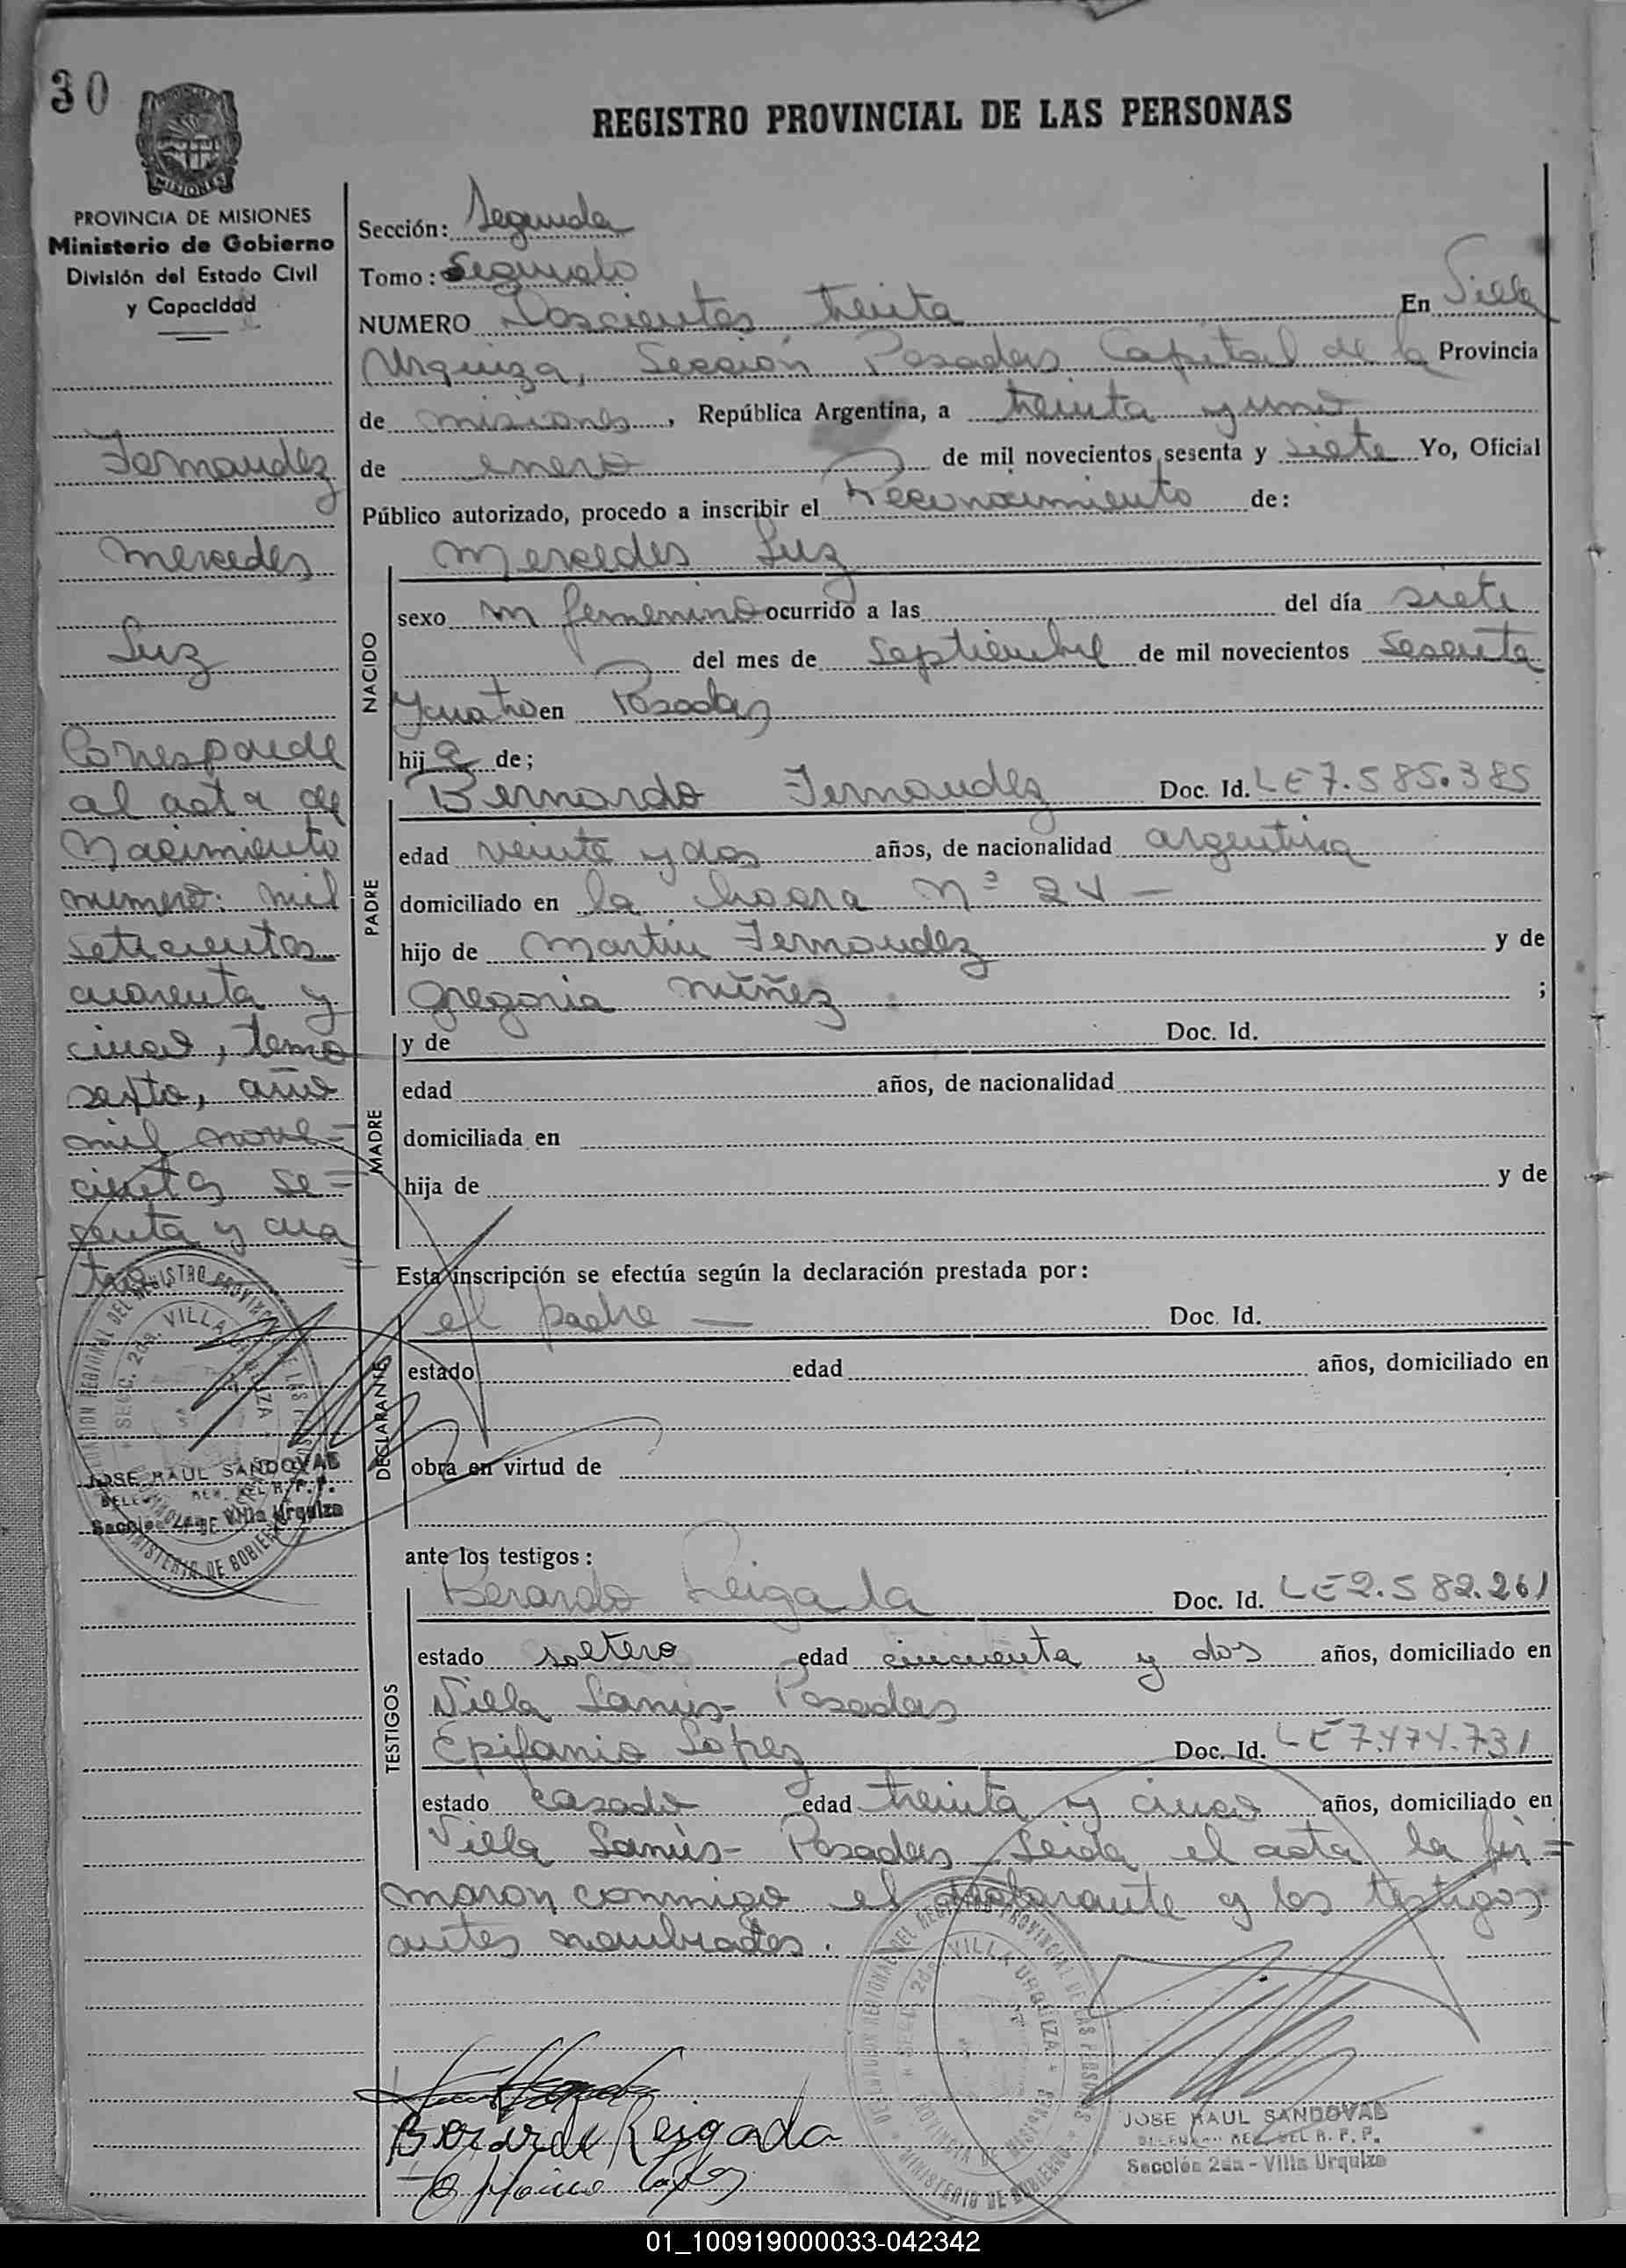 30
REGISTRO PROVINCIAL DE LAS PERSONAS
MISIONES
PROVINCIA DE MISIONES
Ministerio de Gobierno
División del Estado Civil
y Capacidad
Fernandez
Mercedes
Luz
Corresponde
al acta de
Nacimiento
numero: mil
setecientos
cuarenta y
cinco, tomo
sexto, año
mil nove=
cientos se=
senta y cua
tro
JOSE RAUL SANDOVAL
DELEGADO REG. DEL R. P. P.
Sección 2da - Villa Urquiza
Sección: Segunda
Tomo: Segundo
NUMERO Doscientos treinta En Villa
Urquiza, Sección Posadas Capital de la Provincia
de misiones, República Argentina, a treinta y uno
de enero de mil novecientos sesenta y siete Yo, Oficial
Público autorizado, procedo a inscribir el Reconocimiento de:
NACIDO
Mercedes Luz
sexo m femenino ocurrido a las del día siete
del mes de septiembre de mil novecientos sesenta
y cuatro en Posadas
hija de;
PADRE
Bernardo Fernandez Doc. Id. LE 7.585.385
edad veinte y dos años, de nacionalidad argentina
domiciliado en la chacra Nº 24 —
hijo de Martin Fernandez y de
Gregoria Núñez ;
MADRE
y de Doc. Id.
edad años, de nacionalidad
domiciliada en
hija de y de
Esta inscripción se efectúa según la declaración prestada por:
DECLARANTE
el padre — Doc. Id.
estado edad años, domiciliado en
obra en virtud de
ante los testigos:
TESTIGOS
Berardo Reigada Doc. Id. LE 2.582.261
estado soltero edad cincuenta y dos años, domiciliado en
Villa Lanús- Posadas
Epifanio Lopez Doc. Id. LE 7.474.731
estado casado edad treinta y cinco años, domiciliado en
Villa Lanús- Posadas Leida el acta la fir=
maron conmigo el declarante y los testigos
antes nombrados.
Berardo Reigada
Epifanio Lopez
JOSE RAUL SANDOVAL
DELEGADO REG. DEL R. P. P.
Sección 2da - Villa Urquiza
01_100919000033-042342